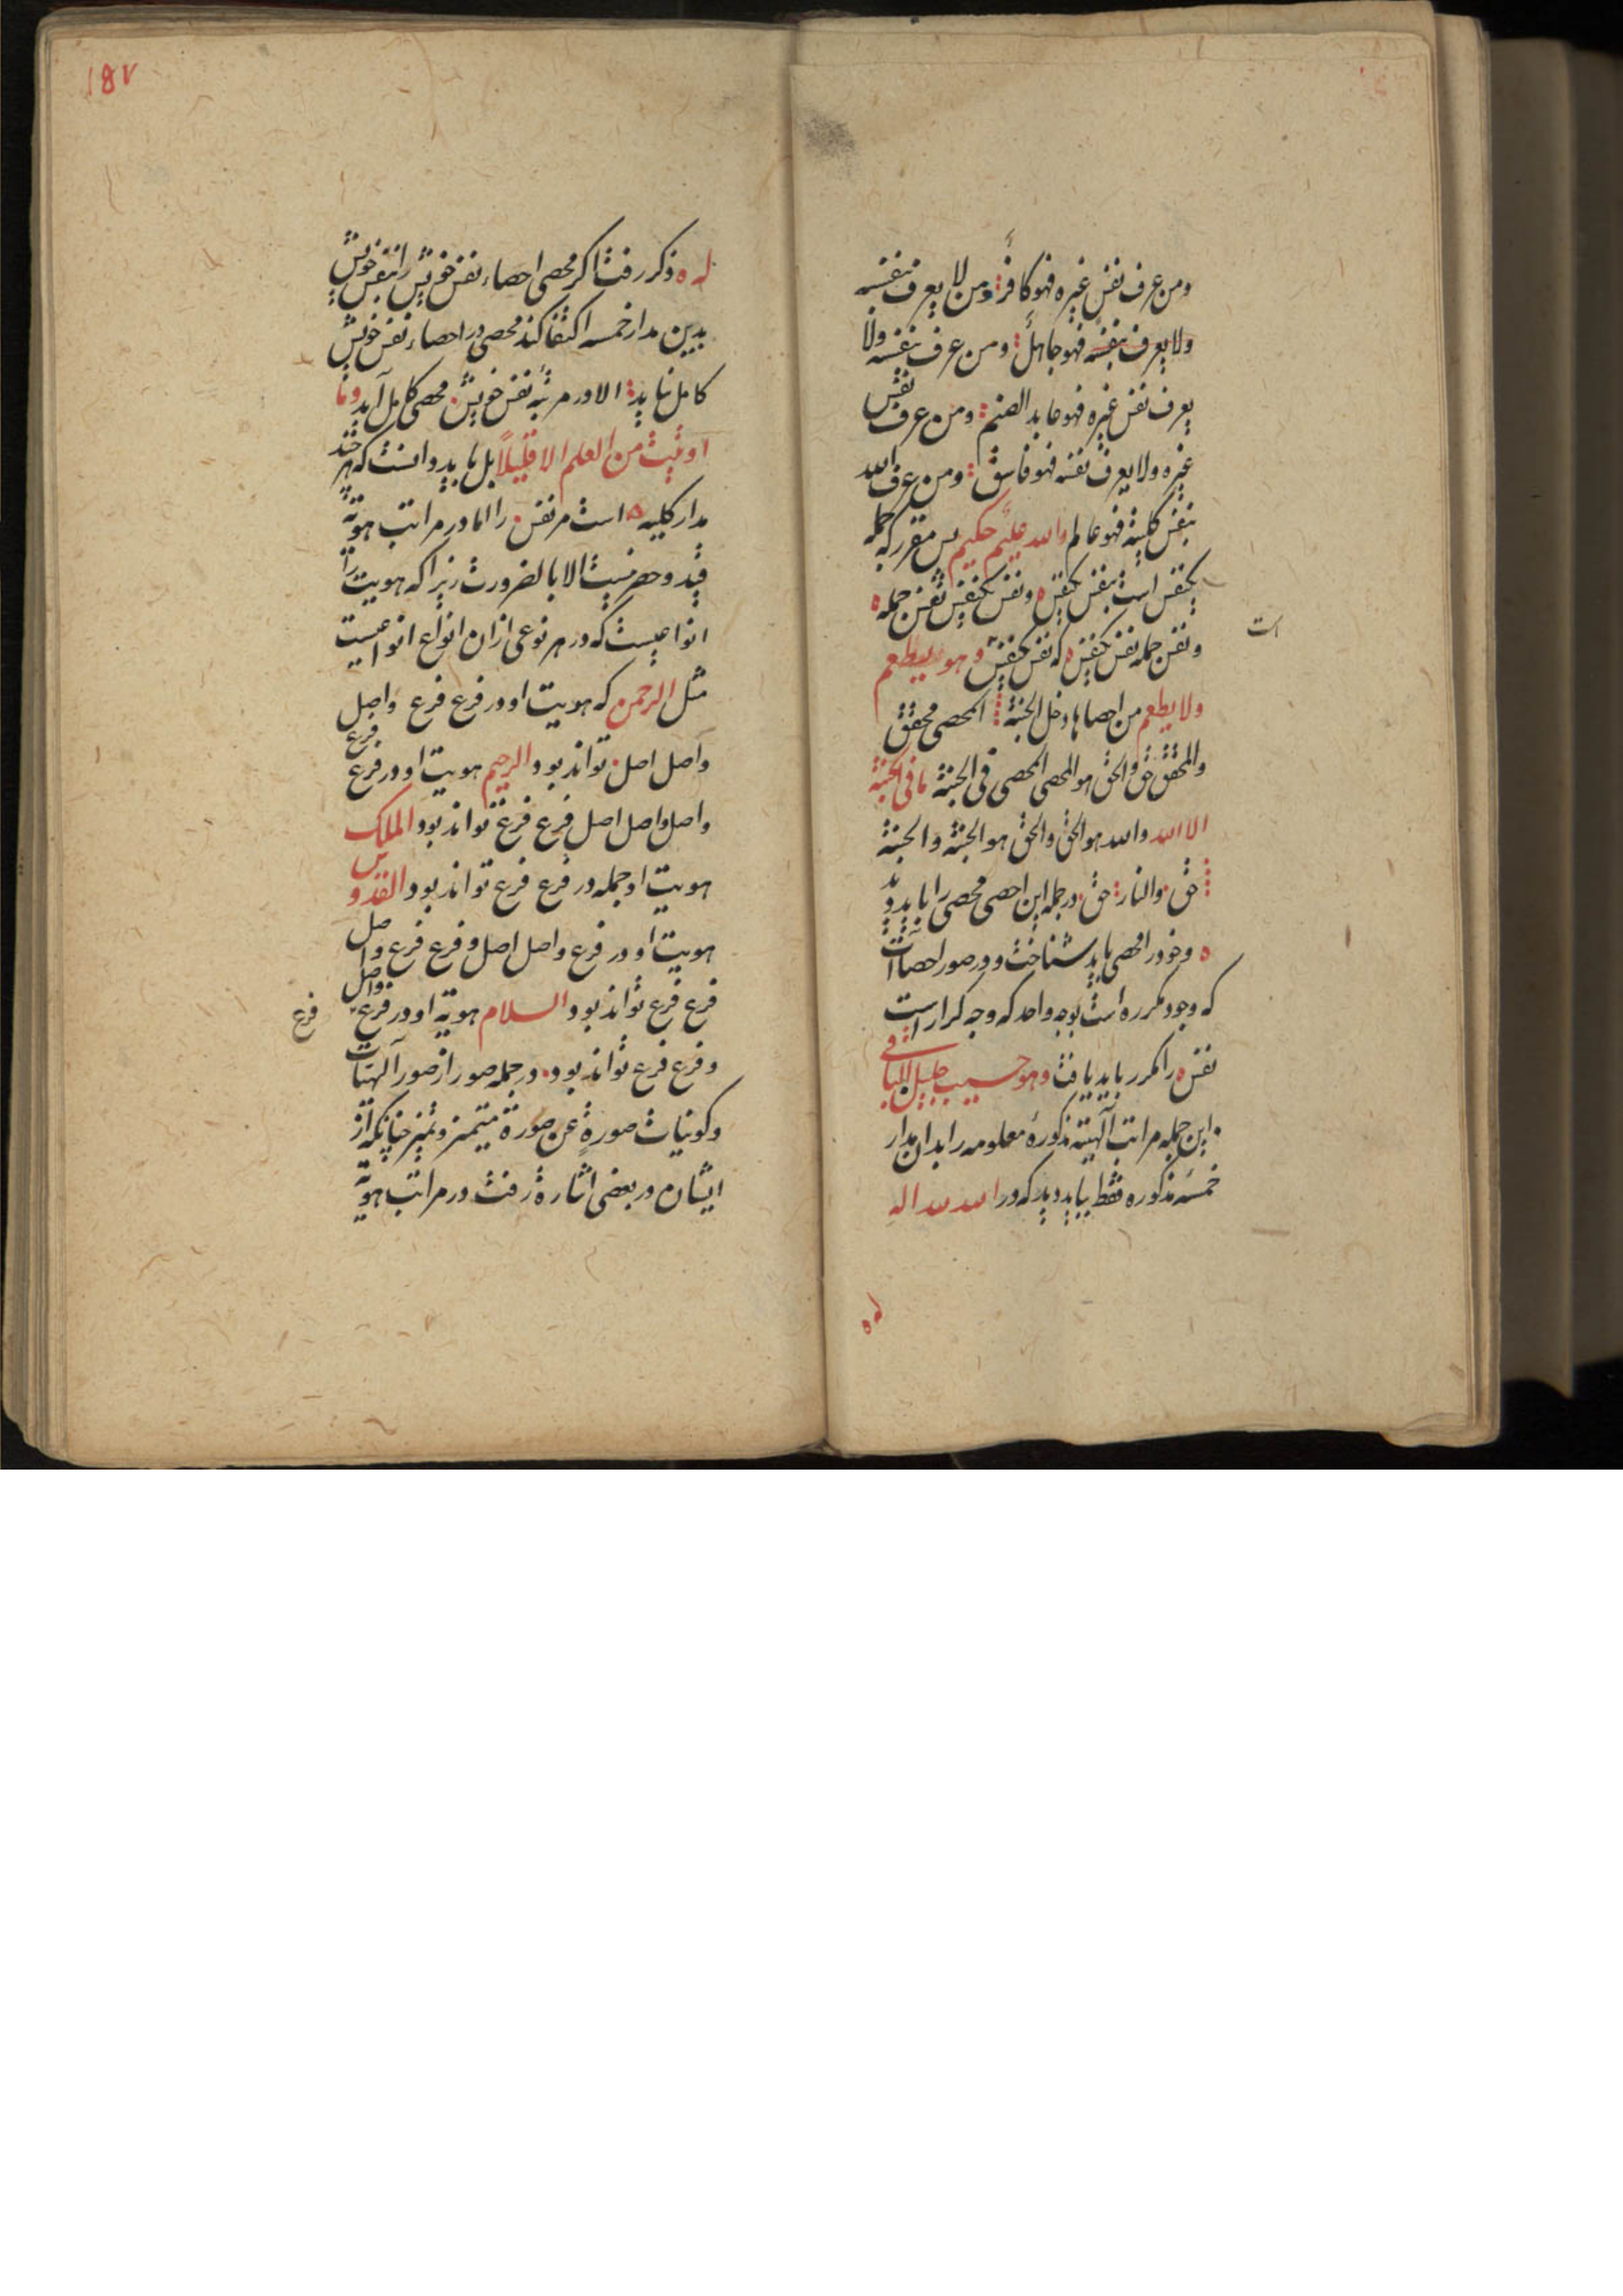 ومن عرف نفس غیره فهو کافر ومن لا یعرف بنفسه
ولا یعرف بنفسه فهو جاهل ومن عرف بنفسه ولا
یعرف نفس غیره فهو عابد الصنم ومن عرف نفس
غیره ولا یعرف نفسه فهو فاسق ومن عرف الله
بنفس کلیة فهو عالم والله علیم حکیم پس مقرر که جمله
یکنفس است بنفس یکنفس ونفس یکنفس نفس جمله
است
ونفس جمله نفس یکنفس که نفس یکنفس وهو یطعم
ولا یطعم من احصاها دخل الجنة المحصی محقق
والمحقق حق والحق هو المحصی المحصی فی الجنة ما فی الجنة
الا الله والله هو الحق والحق هو الجنة والجنة
حق والنار حق در جمله این احصی محصی را باید دید
وخود را محصی باید شناخت ودر صور احصاات
که وجود مکرره است بوجه واحد که وجه کرار است
نفس را مکرر باید یافت وهو حسیب جلیل الباقی
این جمله مراتب آلهیته مذکورهٔ معلومه را بدان مدار
خمسهٔ مذکوره فقط بباید دید که در الله لله اله
له ه
۱۵۷
له ه ذکر رفت اکر محصی احصاء نفس خویش را بنفس خویش
بدین مدار خمسه اکتفا کند محصی در احصاء نفس خویش
کامل نیاید الا در مرتبه نفس خویش محصی کامل آید وما
اوتیت من العلم الا قلیلاً بل باید دانست که هر چند
مدار کلیه است مر نفس را اما در مراتب هویة
قید وحصر نیست الا بالضرورت زیرا که هویت را
انواعیست که در هر نوعی از ان انواع انواعیست
مثل الرحمن که هویت او در فرع فرع واصل
واصل اصل تواند بود والرحیم هویت او در فرع فرع
واصل واصل اصل فرع فرع تواند بود والملک
هویت او جمله در فرع فرع تواند بود والقدوس
هویت او در فرع واصل اصل وفرع فرع واصل
فرع فرع تواند بود والسلام هویة او در فرع واصل
فرع
وفرع فرع تواند بود در جمله صور از صور آلهیات
وکونیات صورةٍ عن صورة متیمز وتمیز چنانکه از
ایشان در بعضی اشارة رفت در مراتب هویة